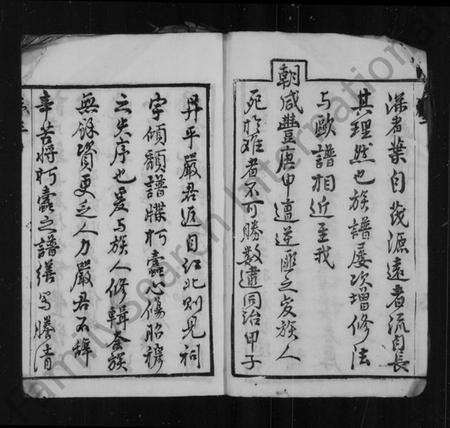 深者葉自茂源遠者流自長
其理然也族譜屢次增修法
與歐譜相近至我
朝咸豐庚申遭逆匪之变族人
死於难者不可勝数逮同治甲子
昇平嚴君返自江北則見祠
宇傾頹譜牒朽蠹心傷昭穆
之失序也爰与族人修輯奈族
無餘資更乏人力嚴君不辞
辛苦将朽蠹之譜繕写謄清
FamilySearch International